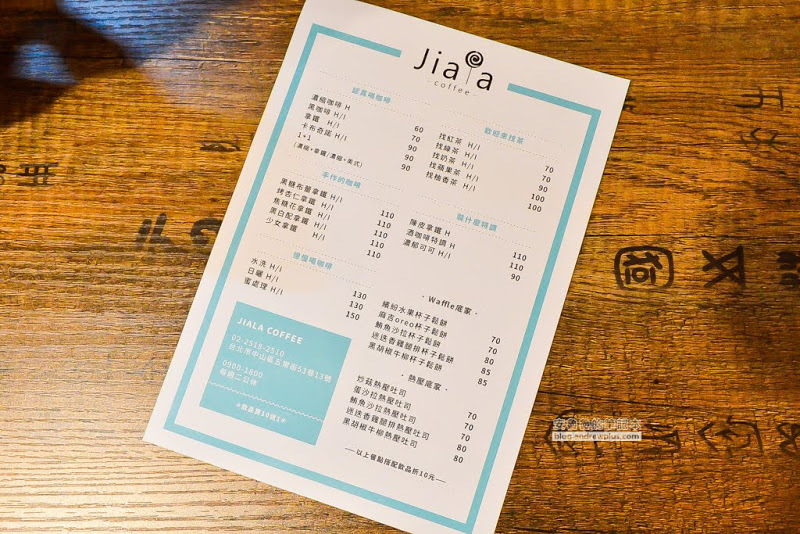 Jiala
coffee
認真喝咖啡
濃縮咖啡 H 60
黑咖啡 H/I 70
拿鐵 H/I 90
卡布奇諾 H/I 90
1+1 90
(濃縮+拿鐵/濃縮+美式)
手作的咖啡
黑糖布蕾拿鐵 H/I 110
烤杏仁拿鐵 H/I 110
焦糖花拿鐵 H/I 110
黑白配拿鐵 H/I 110
少女拿鐵 H/I 110
慢慢喝咖啡
水洗 H/I 130
日曬 H/I 130
蜜處理 H/I 150
JIALA COFFEE
02-2518-2510
台北市中山區五常街53巷13號
0900-1800
每週二公休
*飲品買10送1*
歡迎來找茶
找紅茶 H/I 70
找綠茶 H/I 70
找奶茶 H/I 90
找蘋果茶 H/I 100
找柚香茶 H/I 100
裝什麼特調
陳皮拿鐵 H 110
酒咖啡特調 H 110
濃郁可可 H/I 90
· Waffle底家 ·
繽紛水果杯子鬆餅 70
麻吉oreo杯子鬆餅 70
鮪魚沙拉杯子鬆餅 80
迷迭香雞腿排杯子鬆餅 85
黑胡椒牛柳杯子鬆餅 85
· 熱壓底家 ·
炒菇熱壓吐司 70
蛋沙拉熱壓吐司 70
鮪魚沙拉熱壓吐司 70
迷迭香雞腿排熱壓吐司 80
黑胡椒牛柳熱壓吐司 80
——以上餐點搭配飲品折10元——
blog.andrewplus.com